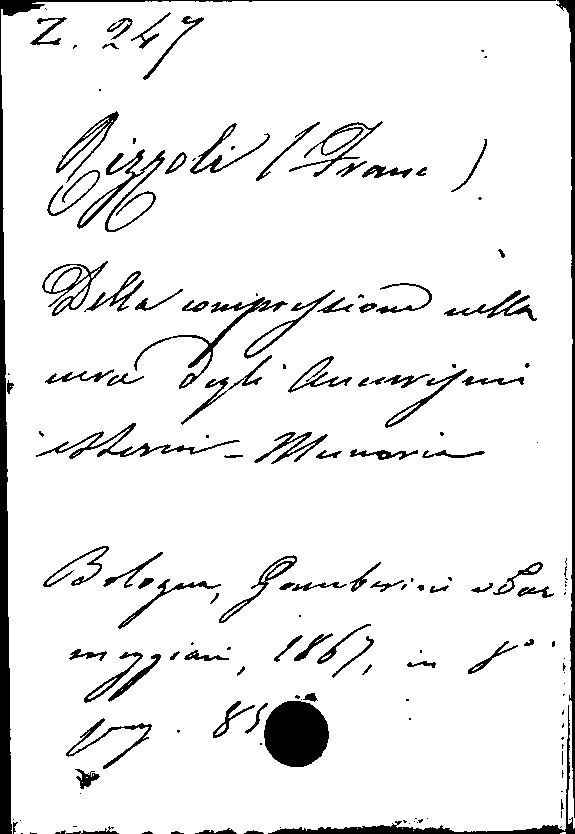 Z. 247
Rizzoli (Franc )
Della compressione nella
cura degli Aneurismi
esterni - Memoria
Bologna, Gamberini e Par
meggiani, 1867, in 8°.
pag. 85